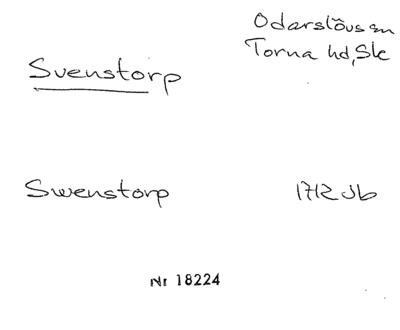 Odarslövs sn
Torna hd, Sk
Svenstorp
Swenstorp 1712 Jb
Nr 18224